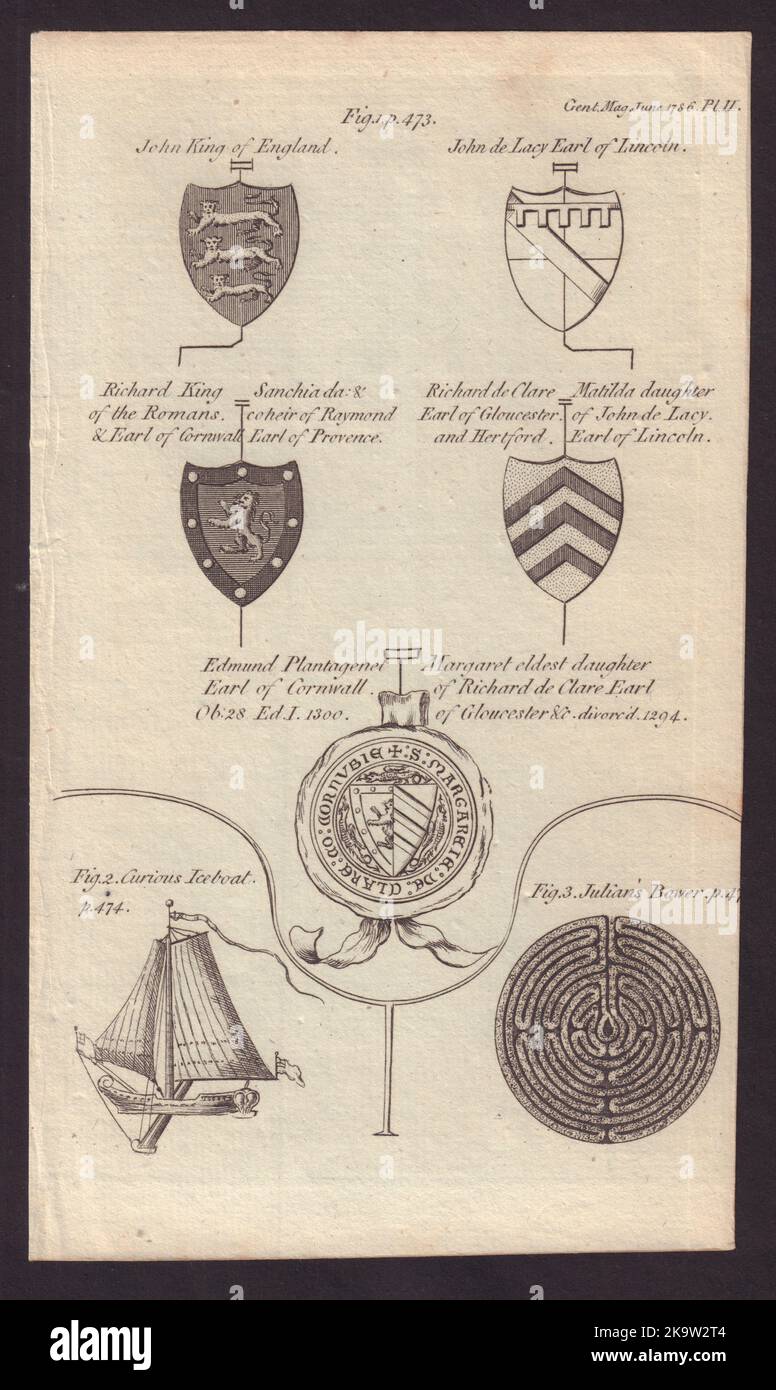 Gent. Mag. June 1786. Pl. II.
Fig. 1. p. 473.
John King of England.
John de Lacy Earl of Lincoln.
Richard King
of the Romans.
& Earl of Cornwall
Sanchia da: &
coheir of Raymond
Earl of Provence.
Richard de Clare
Earl of Gloucester.
and Hertford.
Matilda daughter
of John de Lacy.
Earl of Lincoln.
Edmund Plantagenet
Earl of Cornwall.
Ob: 28 Ed. I. 1300.
Margaret eldest daughter
of Richard de Clare Earl
of Gloucester &c. divorc'd. 1294.
+ : S : MARGARETE : DE : CLARE : CO : CORNVBIE
Fig. 2. Curious Iceboat.
p. 474.
Fig. 3. Julian's Bower. p. 47
alamy
alamy
alamy
a
a
a
alamy
Image ID: 2K9W2T4
www.alamy.com